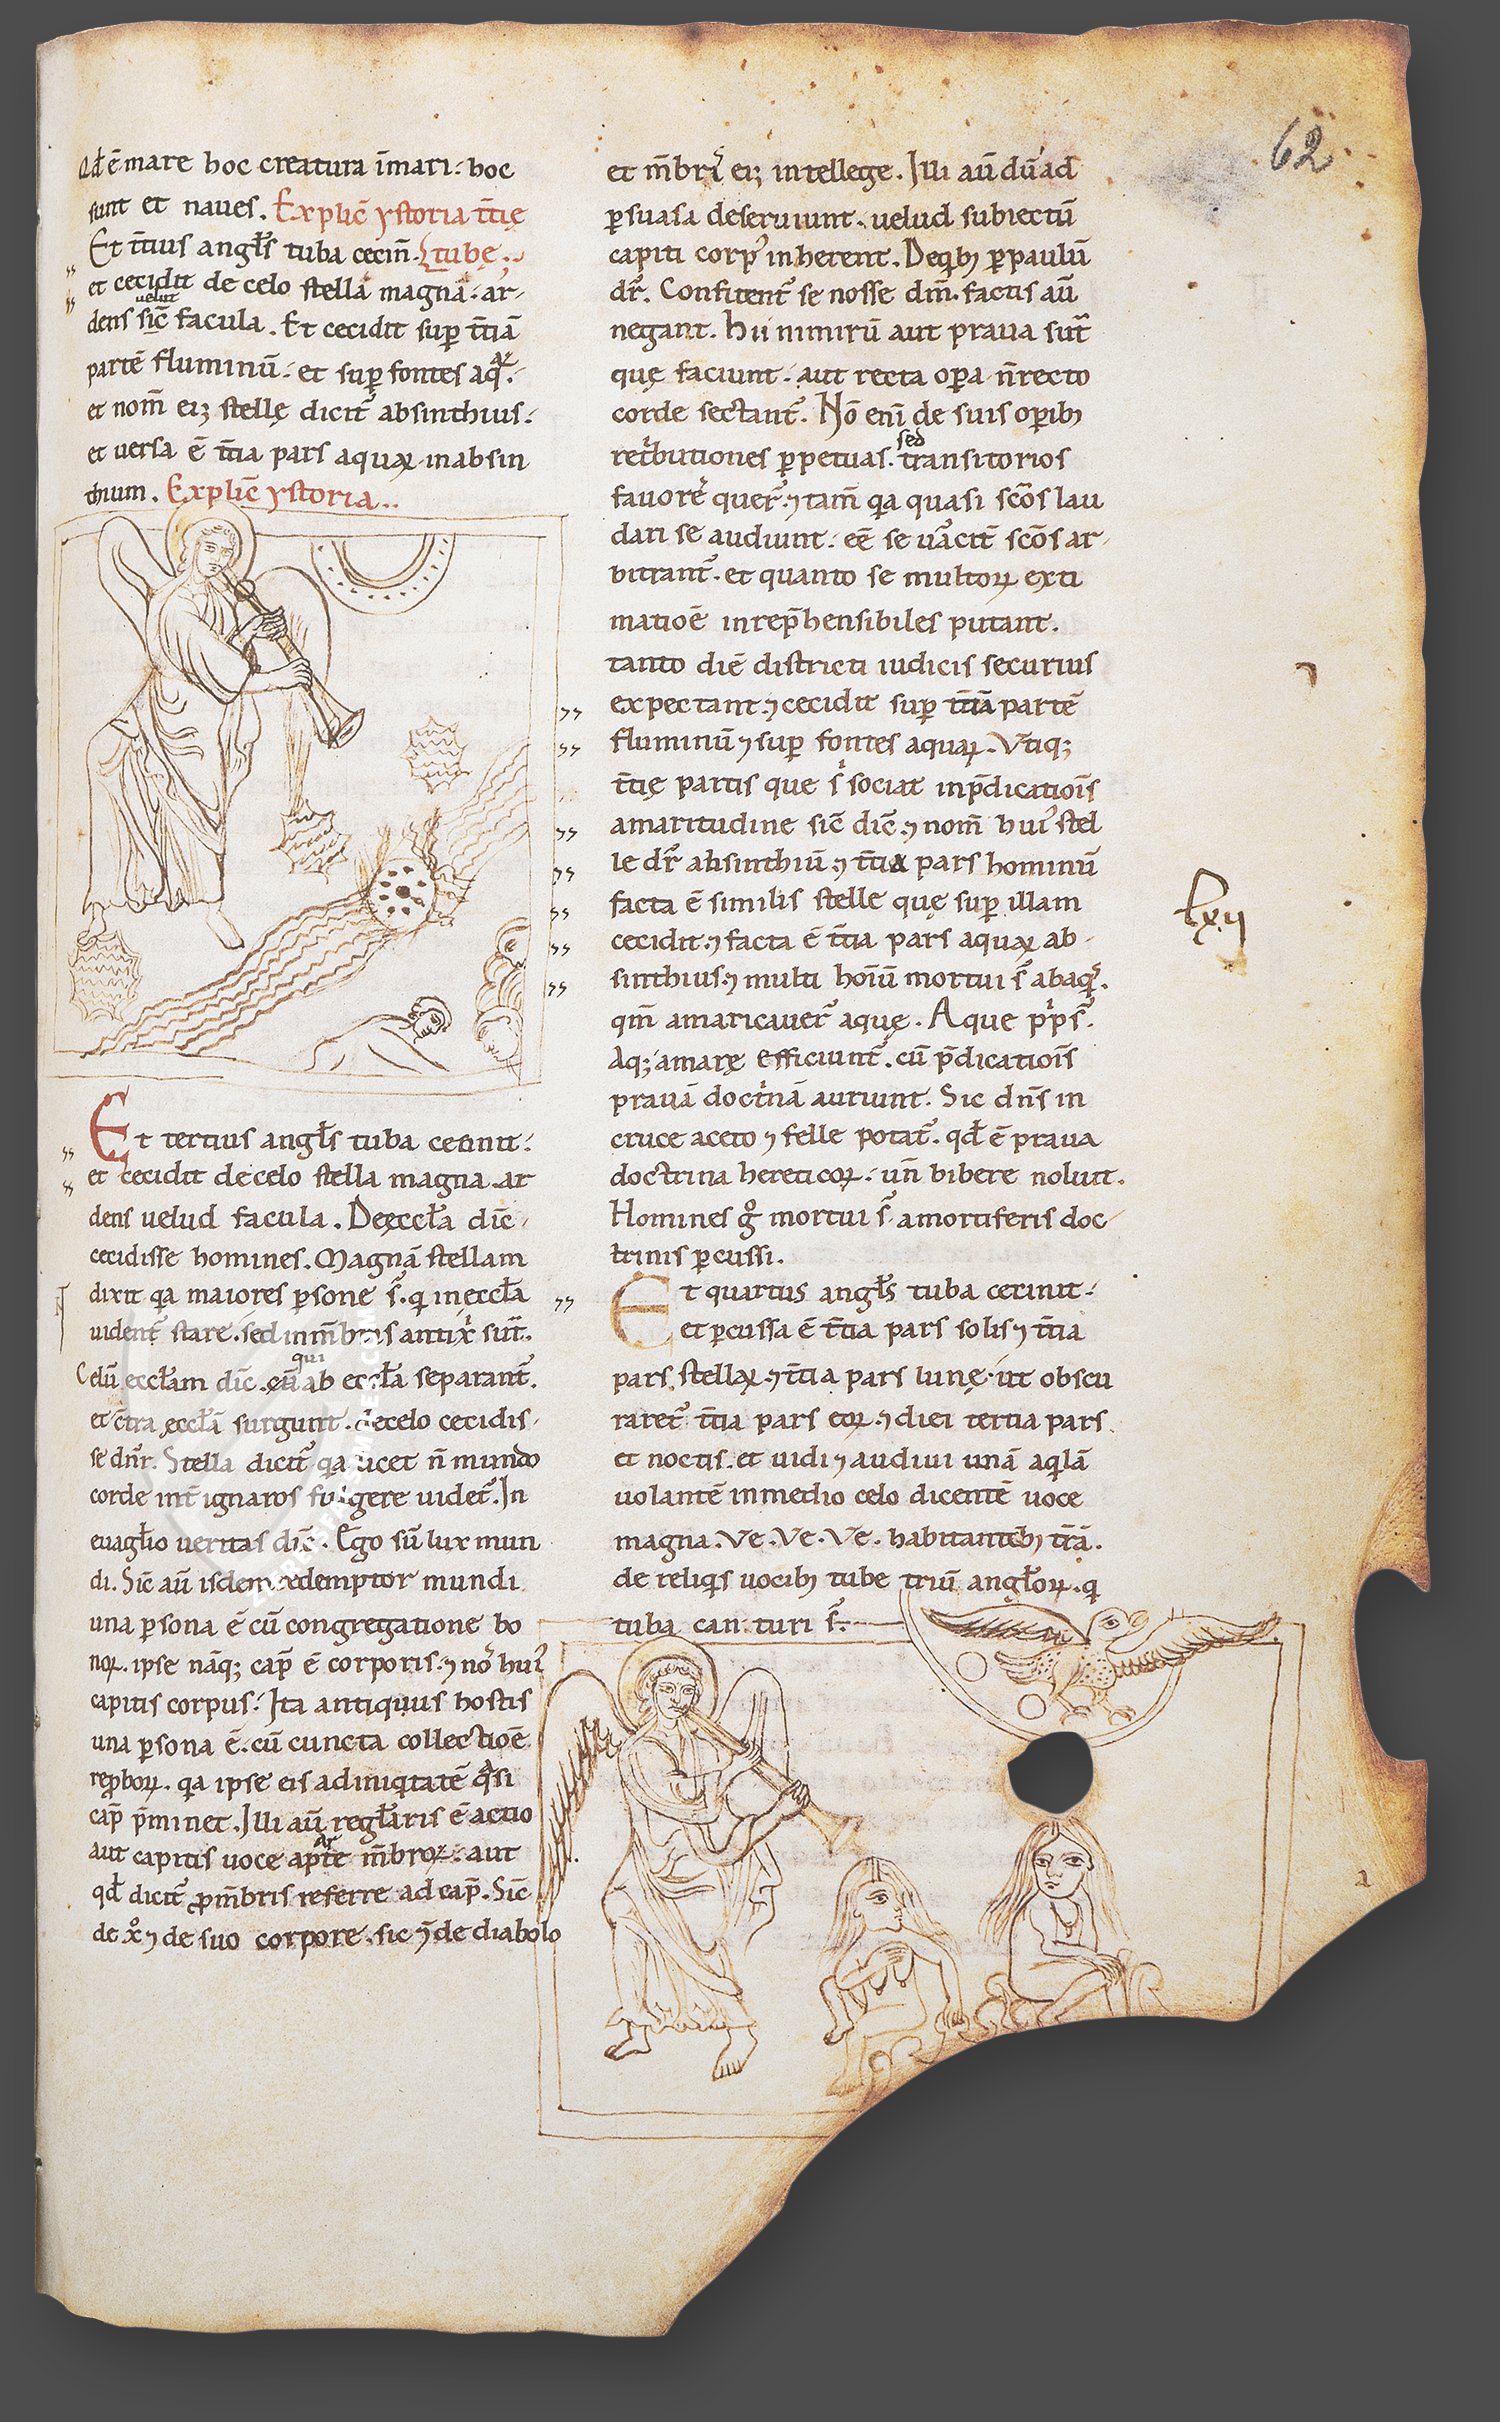 Qđ ē mare hoc creatura īmari. hoc
sunt et naues. Explic̄ ystoria t̄cię
Et t̄cius angl̄s tuba cecin̄. tubę.
et cecidit de celo stella magna. ar
velut
dens sic̄ facula. Et cecidit sup t̄ciā
partē fluminū. et sup fontes aq̄ꝝ.
et nom̄ eiꝫ stellę dicit᷑ absinthius.
et uersa ē t̄cia pars aquaꝝ inabsin
thium. Explic̄ ystoria..
Et tertius angl̄s tuba cecinit.
et cecidit decelo stella magna. ar
dens uelud facula. Deęccl̄a dic̄
cecidisse homines. Magnā stellam
dixit qa maiores ꝑsone s̄. q inęccl̄a
uident᷑ stare. sed inm̄bris antixp̄i sūt.
qui
Celū eccl̄am dic̄. cū ab eccl̄a separant᷑.
et c̄tra ęccl̄ā surgunt. decelo cecidis
se dn̄r. Stella dicit᷑ qa lucet n̄ mundo
corde int̄ ignaros fulgere uidet᷑. In
euagl̄io ueritas dic̄. Ego sū lux mun
di. Sic̄ aū isdem redemptor mundi
una ꝑsona ē cū congregatione bo
noꝝ. ipse nāqꝫ cap̄ ē corporis. ⁊ nos hui᷒
capitis corpus. Ita antiquus hostis
una ꝑsona ē. cū cuncta collectioē
reꝓboꝝ. qa ipse eis adiniqtatē q̄si
cap̄ p̄minet. Illi aū regl̄aris ē actio
ar
aut capitis uoce apte m̄broꝝ. aut
qđ dicit᷑ ꝓm̄bris referre ad cap̄. Sic̄
de xp̄o ⁊ de suo corpore. sic ⁊ de diabolo
62
et m̄bris eiꝫ intellege. Illi aū dū ad
ꝑsuasa deseruiunt. uelud subiectū
capiti corp᷒ inherent. Deqbꝫ ꝑ paulū
dr̄. Confitent᷑ se nosse dm̄. factis aū
negant. Hii nimirū aut praua sūt
quę faciunt. aut recta oꝑa n̄ recto
corde sectant᷑. Nō enī de suis oꝑibꝫ
sed
ret̄butiones ꝑpetuas. transitorios
fauorē quer̄. ⁊ tam̄ qa quasi sc̄os lau
dari se audiunt. eē se uācit᷑ sc̄os ar
bitrant᷑. et quanto se multoꝝ exti
matioē inrep̄hensibiles putant.
tanto diē districti iudicis securius
expectant. ⁊ cecidit sup t̄ciā partē
fluminū ⁊ sup fontes aquaꝝ. Vtiqꝫ
t̄cię partis que s̄ sociat inp̄dicatioīs
amaritudine sic̄ dic̄. ⁊ nom̄ hui᷒ stel
le dr̄ absinthiū. ⁊ t̄cia pars hominū
facta ē similis stelle quę sup illam
cecidit. ⁊ facta ē t̄cia pars aquaꝝ ab
sinthius. ⁊ multi hoīū mortui s̄ abaqs.
lxii
qm̄ amaricauer̄ aquę. Aque p̄p̄s.
Aqꝫ amarę efficiunt᷑. cū p̄dicatioīs
prauā doct̄nā auriunt. Sic dn̄s in
cruce aceto ⁊ felle potat᷑. qđ ē praua
doctrina hereticoꝝ. un̄ bibere noluit.
Homines g̊ mortui s̄ amortiferis doc
trinis ꝑcussi.
Et quartus angl̄s tuba cecinit.
et ꝑcussa ē t̄cia pars solis ⁊ t̄cia
pars stellaꝝ. ⁊ t̄cia pars lunę. ut obscu
raret᷑ t̄cia pars eoꝝ. ⁊ diei tertia pars
et noctis. et uidi ⁊ audiui unā aqlā
uolantē inmedio celo dicentē uoce
magna. Ve. Ve. Ve. habitantibꝫ t̄rā.
de reliqs uocibꝫ tube triū angl̄oꝝ. q
tuba canituri s̄.